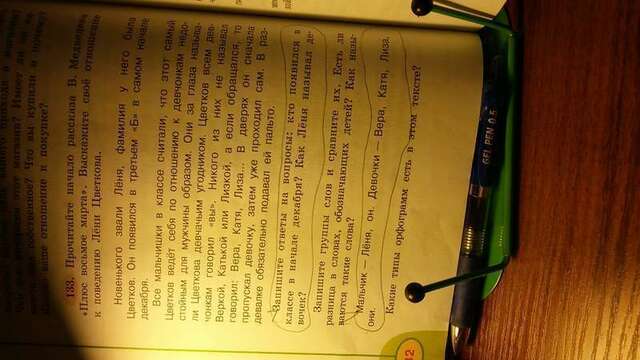 этот магазин? Имеет ли он не-
собственное? Что вы купили и почему?
ваше отношение к покупке?
133. Прочитайте начало рассказа В. Медведева
«Плюс восьмое марта». Выскажите своё отношение
к поведению Лёни Цветкова.
Новенького звали Лёня, фамилия у него была
Цветков. Он появился в третьем «Б» в самом начале
декабря.
Все мальчишки в классе считали, что этот самый
Цветков ведёт себя по отношению к девчонкам недо-
стойным для мужчины образом. Они за глаза называ-
ли Цветкова девчачьим угодником. Цветков всем дев-
чонкам говорил «вы». Никого из них не называл
Веркой, Катькой или Лизкой, а если обращался, то
говорил: Вера, Катя, Лиза... В дверях он сначала
пропускал девочку, затем уже проходил сам. В раз-
девалке обязательно подавал ей пальто.
Запишите ответы на вопросы: кто появился в
классе в начале декабря? Как Лёня называл де-
вочек?
Запишите группы слов и сравните их. Есть ли
разница в словах, обозначающих детей? Как назы-
ваются такие слова?
Мальчик — Лёня, он. Девочки — Вера, Катя, Лиза,
они.
Какие типы орфограмм есть в этом тексте?
GEL PEN 0.5